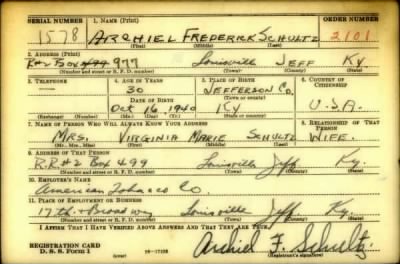 SERIAL NUMBER 1. NAME (Print) ORDER NUMBER
1578 ARCHIEL FREDERICK SCHULTZ 2101
(First) (Middle) (Last)
2. ADDRESS (Print)
R#2 Box 499 977 Louisville JEFF KY.
(Number and street or R. F. D. number) (Town) (County) (State)
3. TELEPHONE 4. AGE IN YEARS 5. PLACE OF BIRTH 6. COUNTRY OF CITIZENSHIP
30 JEFFERSON CO.
DATE OF BIRTH (Town or county)
Oct 16, 1940 KY U.S.A.
(Exchange) (Number) (Mo.) (Day) (Yr.) (State or country)
7. NAME OF PERSON WHO WILL ALWAYS KNOW YOUR ADDRESS 8. RELATIONSHIP OF THAT PERSON
MRS. VIRGINIA MARIE SCHULTZ WIFE.
(Mr., Mrs., Miss) (First) (Middle) (Last)
9. ADDRESS OF THAT PERSON
R.R.#2 Box 499 Louisville Jeff. Ky.
(Number and street or R. F. D. number) (Town) (County) (State)
10. EMPLOYER'S NAME
American Tobacco Co.
11. PLACE OF EMPLOYMENT OR BUSINESS
17th & Broadway Louisville Jeff. Ky.
(Number and street or R. F. D. number) (Town) (County) (State)
I AFFIRM THAT I HAVE VERIFIED ABOVE ANSWERS AND THAT THEY ARE TRUE.
REGISTRATION CARD
D. S. S. FORM 1 Archiel F. Schultz
(Registrant's signature)